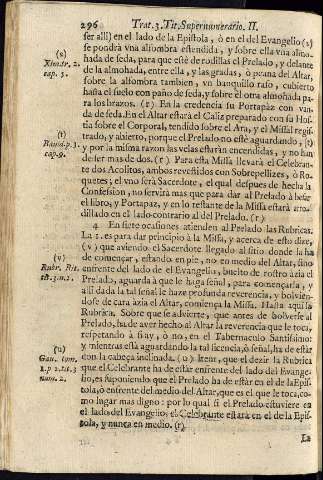 296 Trat. 3. Tit. Supernumerario. II.
ser alli) en el lado de la Epistola, ò en el del Evangelio (s)
se pondrà vna alfombra estendida, y sobre ella vna almo-
hada de seda, para que estè de rodillas el Prelado, y delante
de la almohada, entre ella, y las gradas, ò peana del Altar,
sobre la alfombra tambien, vn banquillo raso, cubierto
hasta el suelo con paño de seda, y sobre èl otra almohada pa-
ra los brazos. (r) En la credencia su Portapàz con van-
da de seda. En el Altar estarà el Caliz preparado con su Hos-
tia sobre el Corporal, tendido sobre el Ara, y el Missal regis-
trado, y abierto, porque el Prelado no estè aguardando, (t)
y por la misma razon las velas estaràn encendidas, y no han
de ser mas de dos. (r) Para esta Missa llevarà el Celebran-
te dos Acolitos, ambos revestidos con Sobrepellizes, ò Ro-
quetes; el vno serà Sacerdote, el qual despues de hecha la
Confession, no servirà mas que para dar al Prelado à besar
el libro, y Portapaz, y en lo restante de la Missa estarà arro-
dillado en el lado contrario al del Prelado. (r)
4 En siete ocasiones atienden al Prelado las Rubricas.
La 1. es para dar principio à la Missa, y acerca de esto dize,
(v) que aviendo el Sacerdote llegado al sitio donde la ha
de començar, estando en pie, no en medio del Altar, sino
enfrente del lado de el Evangelio, buelto de rostro àzia el
Prelado, aguarda à que le haga señal, para començarla, y
alli dada la tal señal le haze profunda reverencia, y bolvien-
dose de cara àzia el Altar, comiença la Missa. Hasta aqui la
Rubrica. Sobre que se advierte, que antes de bolverse al
Prelado, ha de aver hecho al Altar la reverencia que le toca,
respetando à si ay, ò no, en el Tabernaculo Santissimo:
y mientras està aguardando la tal licencia, ò señal, ha de estàr
con la cabeça inclinada. (u) Item, que el dezir la Rubrica
que el Celebrante ha de estàr enfrente del lado del Evange-
lio, es suponiendo que el Prelado ha de estàr en el de la Epis-
tola, ò enfrente del medio del Altar, que es el que le toca, co-
mo lugar mas digno: por lo qual si el Prelado estuviere en
el lado del Evangelio, el Celebrante estarà en el de la Epis-
tola, y nunca en medio. (r)
La
(s)
cap. 3.
(t)
cap. 9.
(v)
Rubr. Rit.
(u)
num. 2.